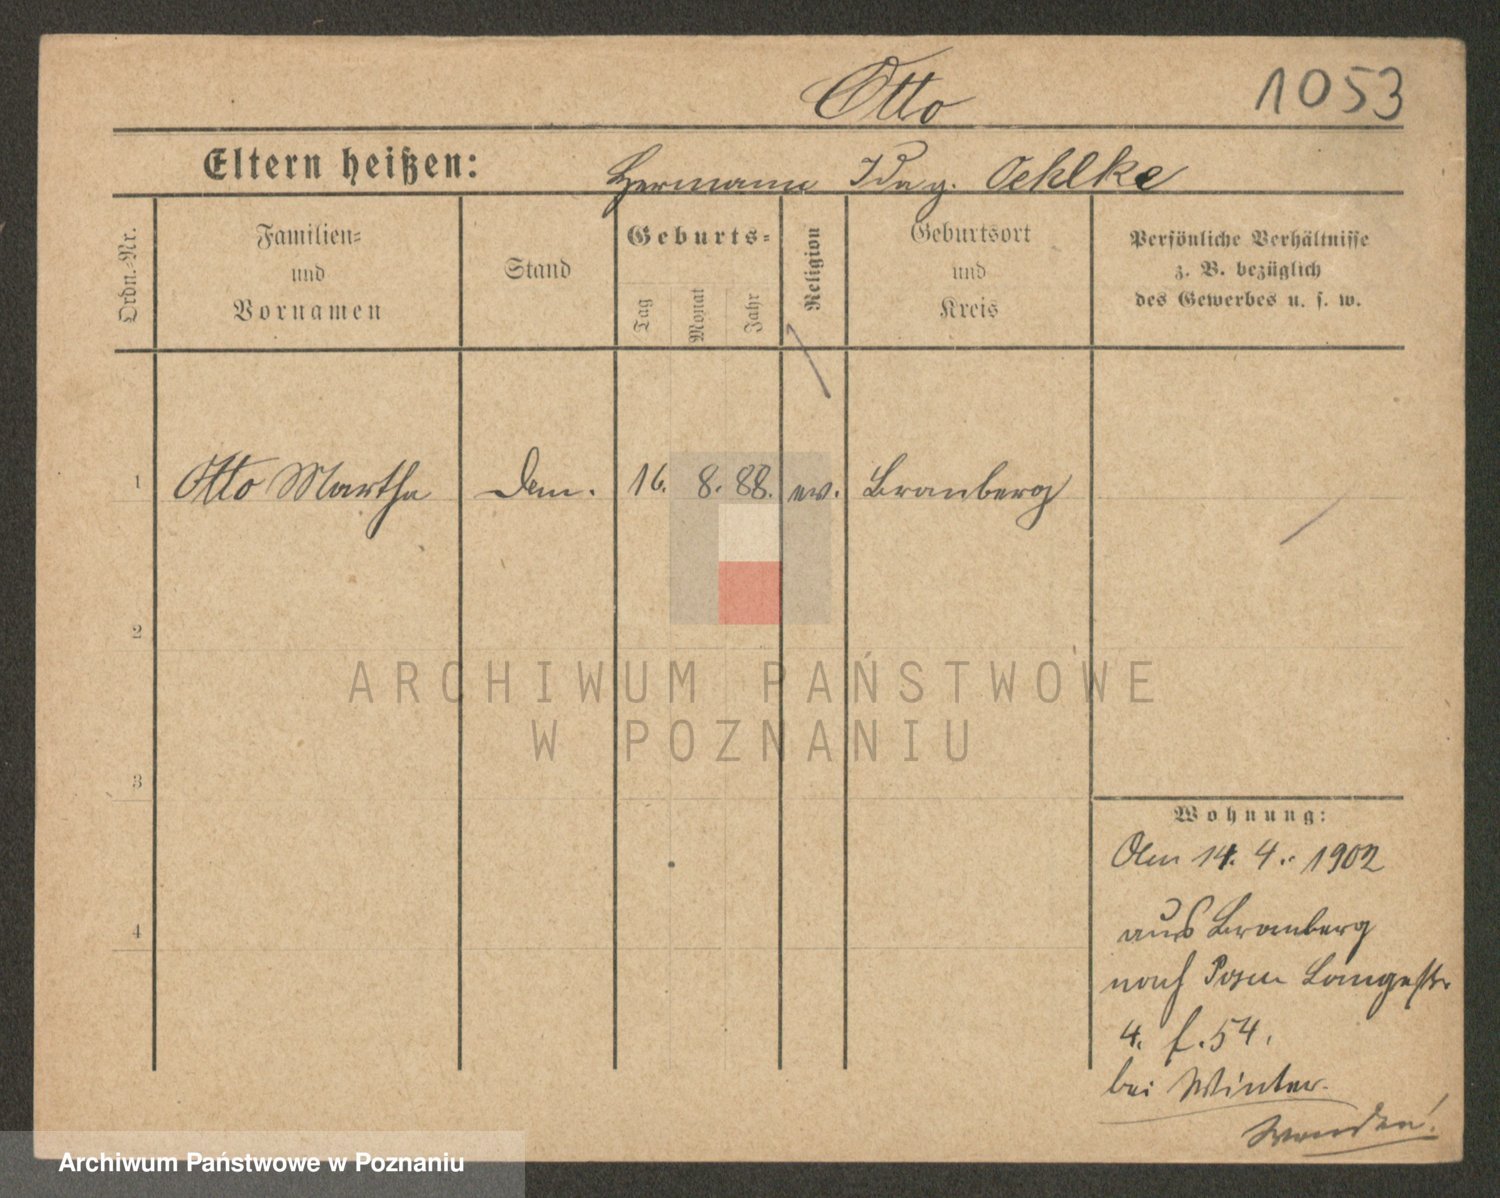 Otto 1053
Eltern heißen: Hermann Ida g. Oehlke
Ordn.-Nr.
Familien-
und
Vornamen
Stand
Geburts-
Tag
Monat
Jahr
Religion
Geburtsort
und
Kreis
Persönliche Verhältnisse
z. B. bezüglich
des Gewerbes u. s. w.
1 Otto Martha 16. 8. 88. ev. Bromberg
2
3
4
ARCHIWUM PAŃSTWOWE
W POZNANIU
Wohnung:
14. 4. 1902
aus Bromberg
nach Posen Langestr.
4. f. 54.
bei Winter.
Wenden!
Archiwum Państwowe w Poznaniu